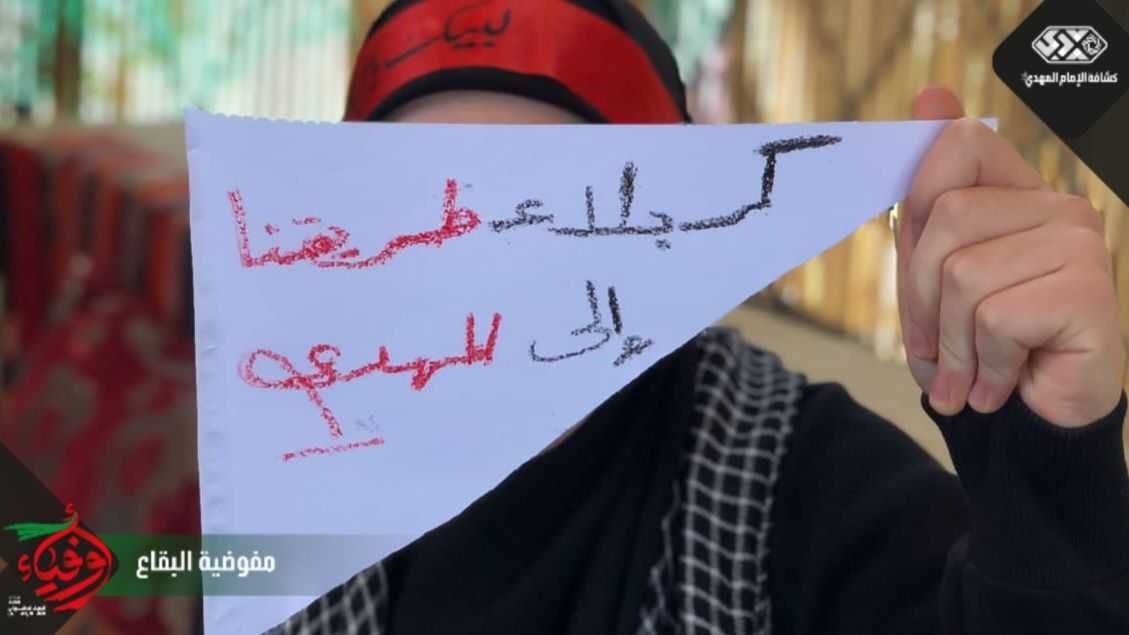 لبيك
كشافة الإمام المهدي
كربلاء طريقنا
وإلى المهدي
أوفياء
مفوضية البقاع